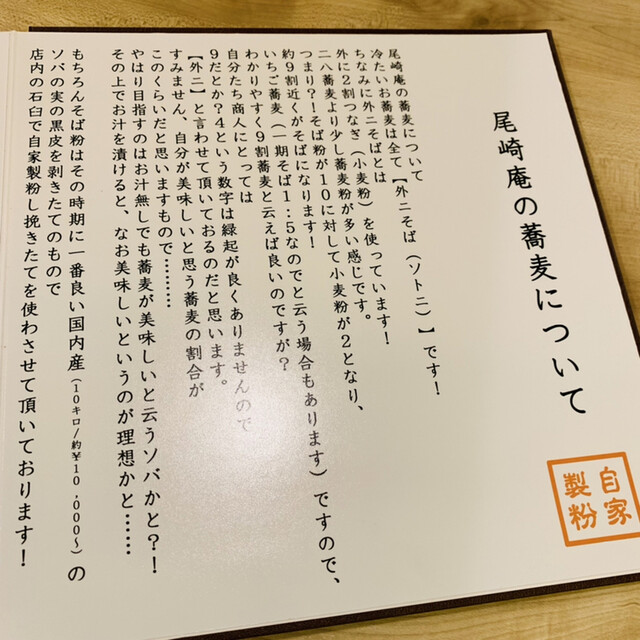 尾崎庵の蕎麦について
自家
製粉
尾崎庵の蕎麦について
冷たいお蕎麦は全て【外二そば（ソトニ）】です！
ちなみに外二そばとは
外に２割つなぎ（小麦粉）を使っています！
二八蕎麦より少し蕎麦粉が多い感じです。
つまり？！そば粉が１０に対して小麦粉が２となり、
約９割近くがそばになります！
いちご蕎麦（一期そば１：５なのでと云う場合もあります）ですので、
わかりやすく９割蕎麦と云えば良いのですが？
自分たち商人にとっては
９だとか？４という数字は縁起が良くありませんので
【外二】と言わせて頂いておるのだと思います。
すみません、自分が美味しいと思う蕎麦の割合が
このくらいだと思いますもので…………
やはり目指すのはお汁無しでも蕎麦が美味しいと云うソバかと？！
その上でお汁を漬けると、なお美味しいというのが理想かと……
もちろんそば粉はその時期に一番良い国内産（１０キロ/約￥１０,０００〜）の
ソバの実の黒皮を剥きたてのもので
店内の石臼で自家製粉し挽きたてを使わさせて頂いております！